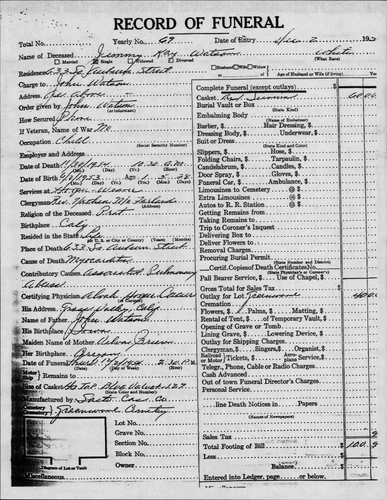 RECORD OF FUNERAL
Total No.
Yearly No. 69
Date of Entry Dec 2 19
Name of Deceased Jimmy Ray Watson White
Married Single Widowed Divorced (What Race)
Residence 633 So Auburn Street
Husband Wife Widow of Age of Husband or Wife (if living) Years
Charge to John Watson
Address
Order given by John Watson
(or informant)
How Secured Phone
If Veteran, Name of War No
Occupation Child
(Social Security Number)
Employer and Address
Date of Death 11/30/1954 10.30 A.M.
Date of Birth 1953 Age 1. 5. 28
Services at
Clergyman Rev.
Religion of the Deceased Prot
Birthplace Calif
Resided in the State Life
(In U. S. or City or County) (Months)
Place of Death 633 So Auburn Street
Cause of Death
Contributory Causes Pulmonary
Certifying Physician
His Address Grass Valley, Calif
Name of Father John Watson
His Birthplace Iowa
Maiden Name of Mother
Her Birthplace Oregon
Date of Funeral 2.30 P.M.
Motor
Remains to
Size of Casket Blue
(State Color and Number)
Manufactured by Co.
Cemetery
Crematory Greenwood Cemetery
Lot No.
Grave No.
Section No.
Block No.
Owner
Diagram of Lot or Vault
Miscellaneous
Complete Funeral (except outlays)
Casket 60.00
Burial Vault or Box
(State Kind)
Embalming Body
(Name of Embalmer)
Barber, $ Hair Dressing, $
Dressing Body, $ Underwear, $
Suit or Dress
(State Kind and Color)
Slippers, $ Hose, $
Folding Chairs, $ Tarpaulin, $
Candelabrum, $ Candles, $
Door Spray, $ Gloves, $
Funeral Car, $ Ambulance, $
Limousines to Cemetery @ $
Extra Limousines @ $
Autos to R. R. Station @ $
Getting Remains from
Taking Remains to
Trip to Coroner's Inquest
Delivering Box to
Deliver Flowers to
Removal Charges
Procuring Burial Permit
(State Number and District)
Certif. Copies of Death Certificates No.
Pall Bearer Service, $ Use of Chapel, $
Gross Total for Sales Tax $
Outlay for Lot Greenwood 40.00
Cremation
Flowers, $ Palms, $ Matting, $
Rental of Tent, $ of Temporary Vault, $
Opening of Grave or Tomb
Lining Grave, $ Lowering Device, $
Outlay for Shipping Charges
Clergyman, $ Singers, $ Organist, $
Tickets, $ Service, $
Telegr., Phone, Cable or Radio Charges
Cash Advanced
Out of town Funeral Director's Charges
Personal Service
line Death Notices in Papers
(Names of Newspapers)
Sales Tax $
Total Footing of Bill $ 100.00
Less $
Balance $
Entered into Ledger, page or below.